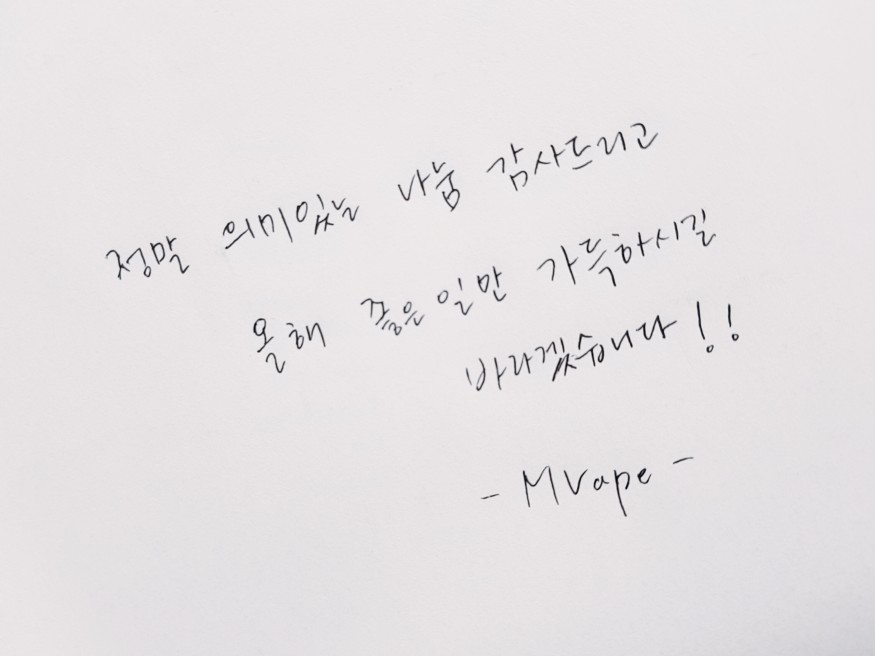 정말 의미있는 나눔 감사드리고
올해 좋은일만 가득하시길
바라겠습니다!!
- MVape -